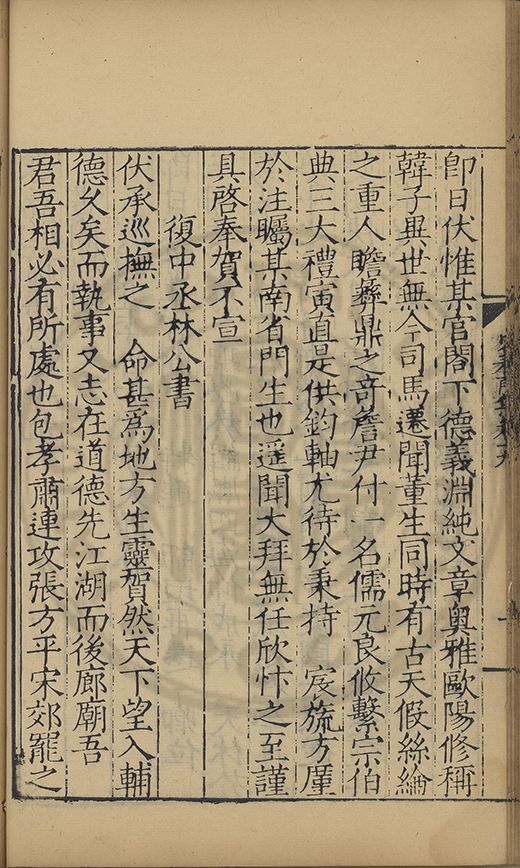 即日伏惟某官閣下德義淵純文章奧雅歐陽修稱
韓子異世無今司馬遷聞董生同時有古天假絲綸
之重人瞻彝鼎之奇詹尹付一名儒元良攸繫宗伯
典三大禮寅直是供鈞軸尤待於秉持　宸旒方厪
於注矚某南省門生也遥聞大拜無任欣忭之至謹
具啓奉賀不宣
復中丞林公書
伏承巡撫之　命甚爲地方生靈賀然天下望入輔
德久矣而執事又志在道德先江湖而後廊廟吾
君吾相必有所處也包孝肅連攻張方平宋郊罷之